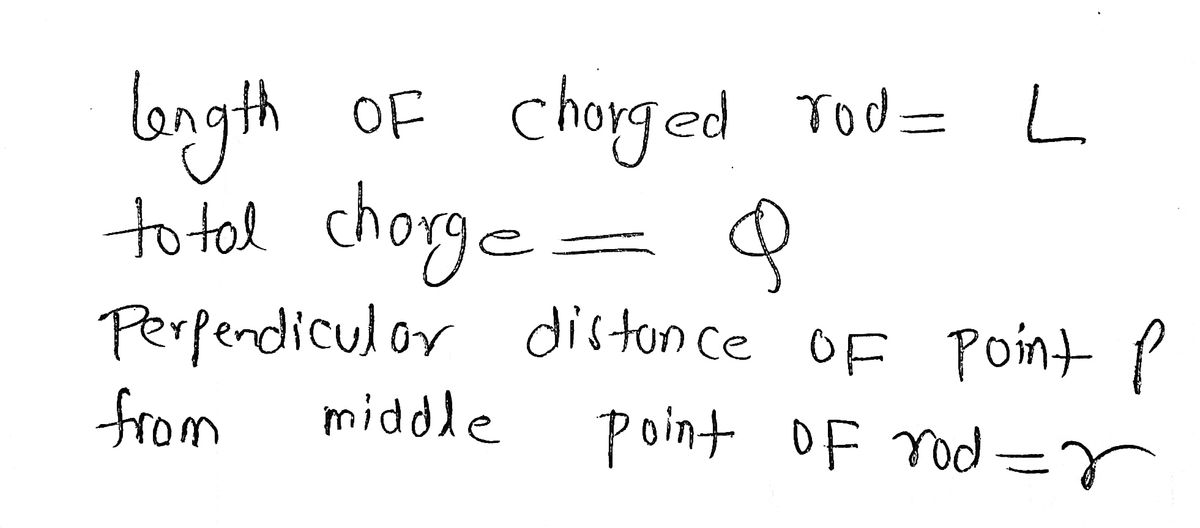 length OF charged rod = L
total charge = Q
Perpendicular distance OF Point P
from middle point OF rod = r